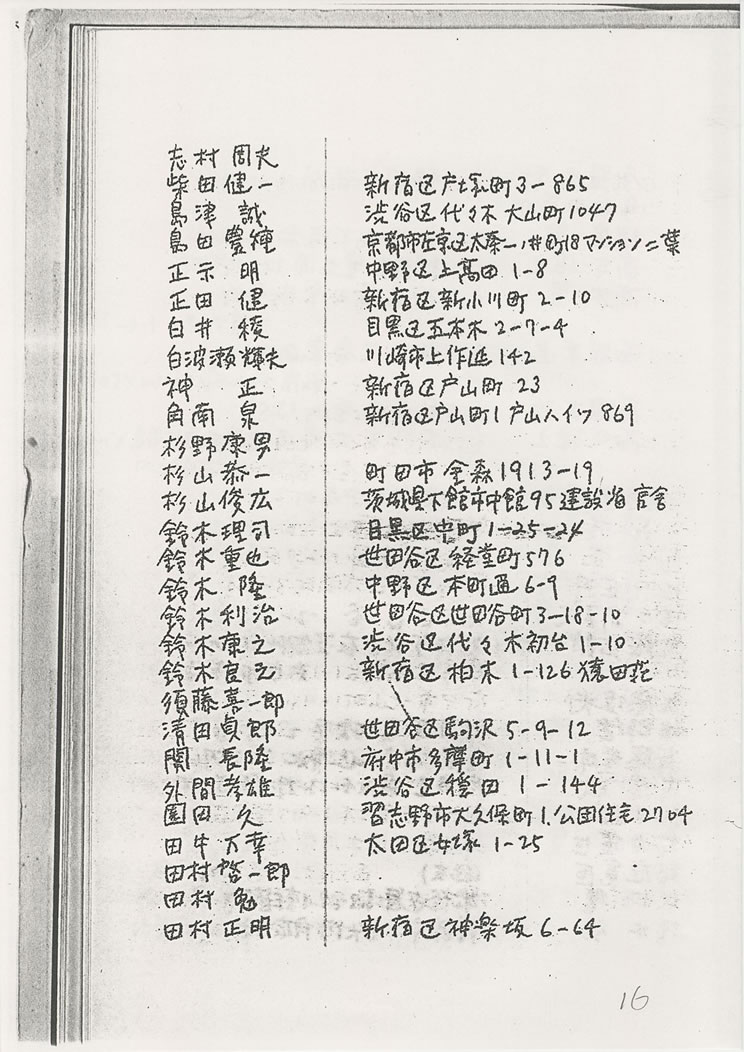 志村周夫
柴田健一 新宿区戸塚町3-865
島津誠 渋谷区代々木大山町1047
島田豊 京都市左京区太秦一ノ井町18マンション二葉
正示明 中野区上高田1-8
正田健 新宿区新小川町2-10
白井稜 目黒区五本木2-7-4
白波瀬輝夫 川崎市上作延142
神正 新宿区戸山町23
角南泉 新宿区戸山町1戸山ハイツ869
杉野康男
杉山恭一 町田市金森1913-19
杉山俊広 茨城県下館市中館95建設省官舎
鈴木理司 目黒区中町1-25-24
鈴木重也 世田谷区経堂町576
鈴木隆 中野区本町通6-9
鈴木利治 世田谷区世田谷町3-18-10
鈴木康之 渋谷区代々木初台1-10
鈴木良 新宿区柏木1-126猿田荘
須藤喜一郎
清田貞郎 世田谷区駒沢5-9-12
関長隆 府中市多摩町1-11-1
外間孝雄 渋谷区穏田1-144
園田久 習志野市大久保町1.公団住宅2704
田中万幸 太田区女塚1-25
田村啓一郎
田村勉
田村正明 新宿区神楽坂6-64
16